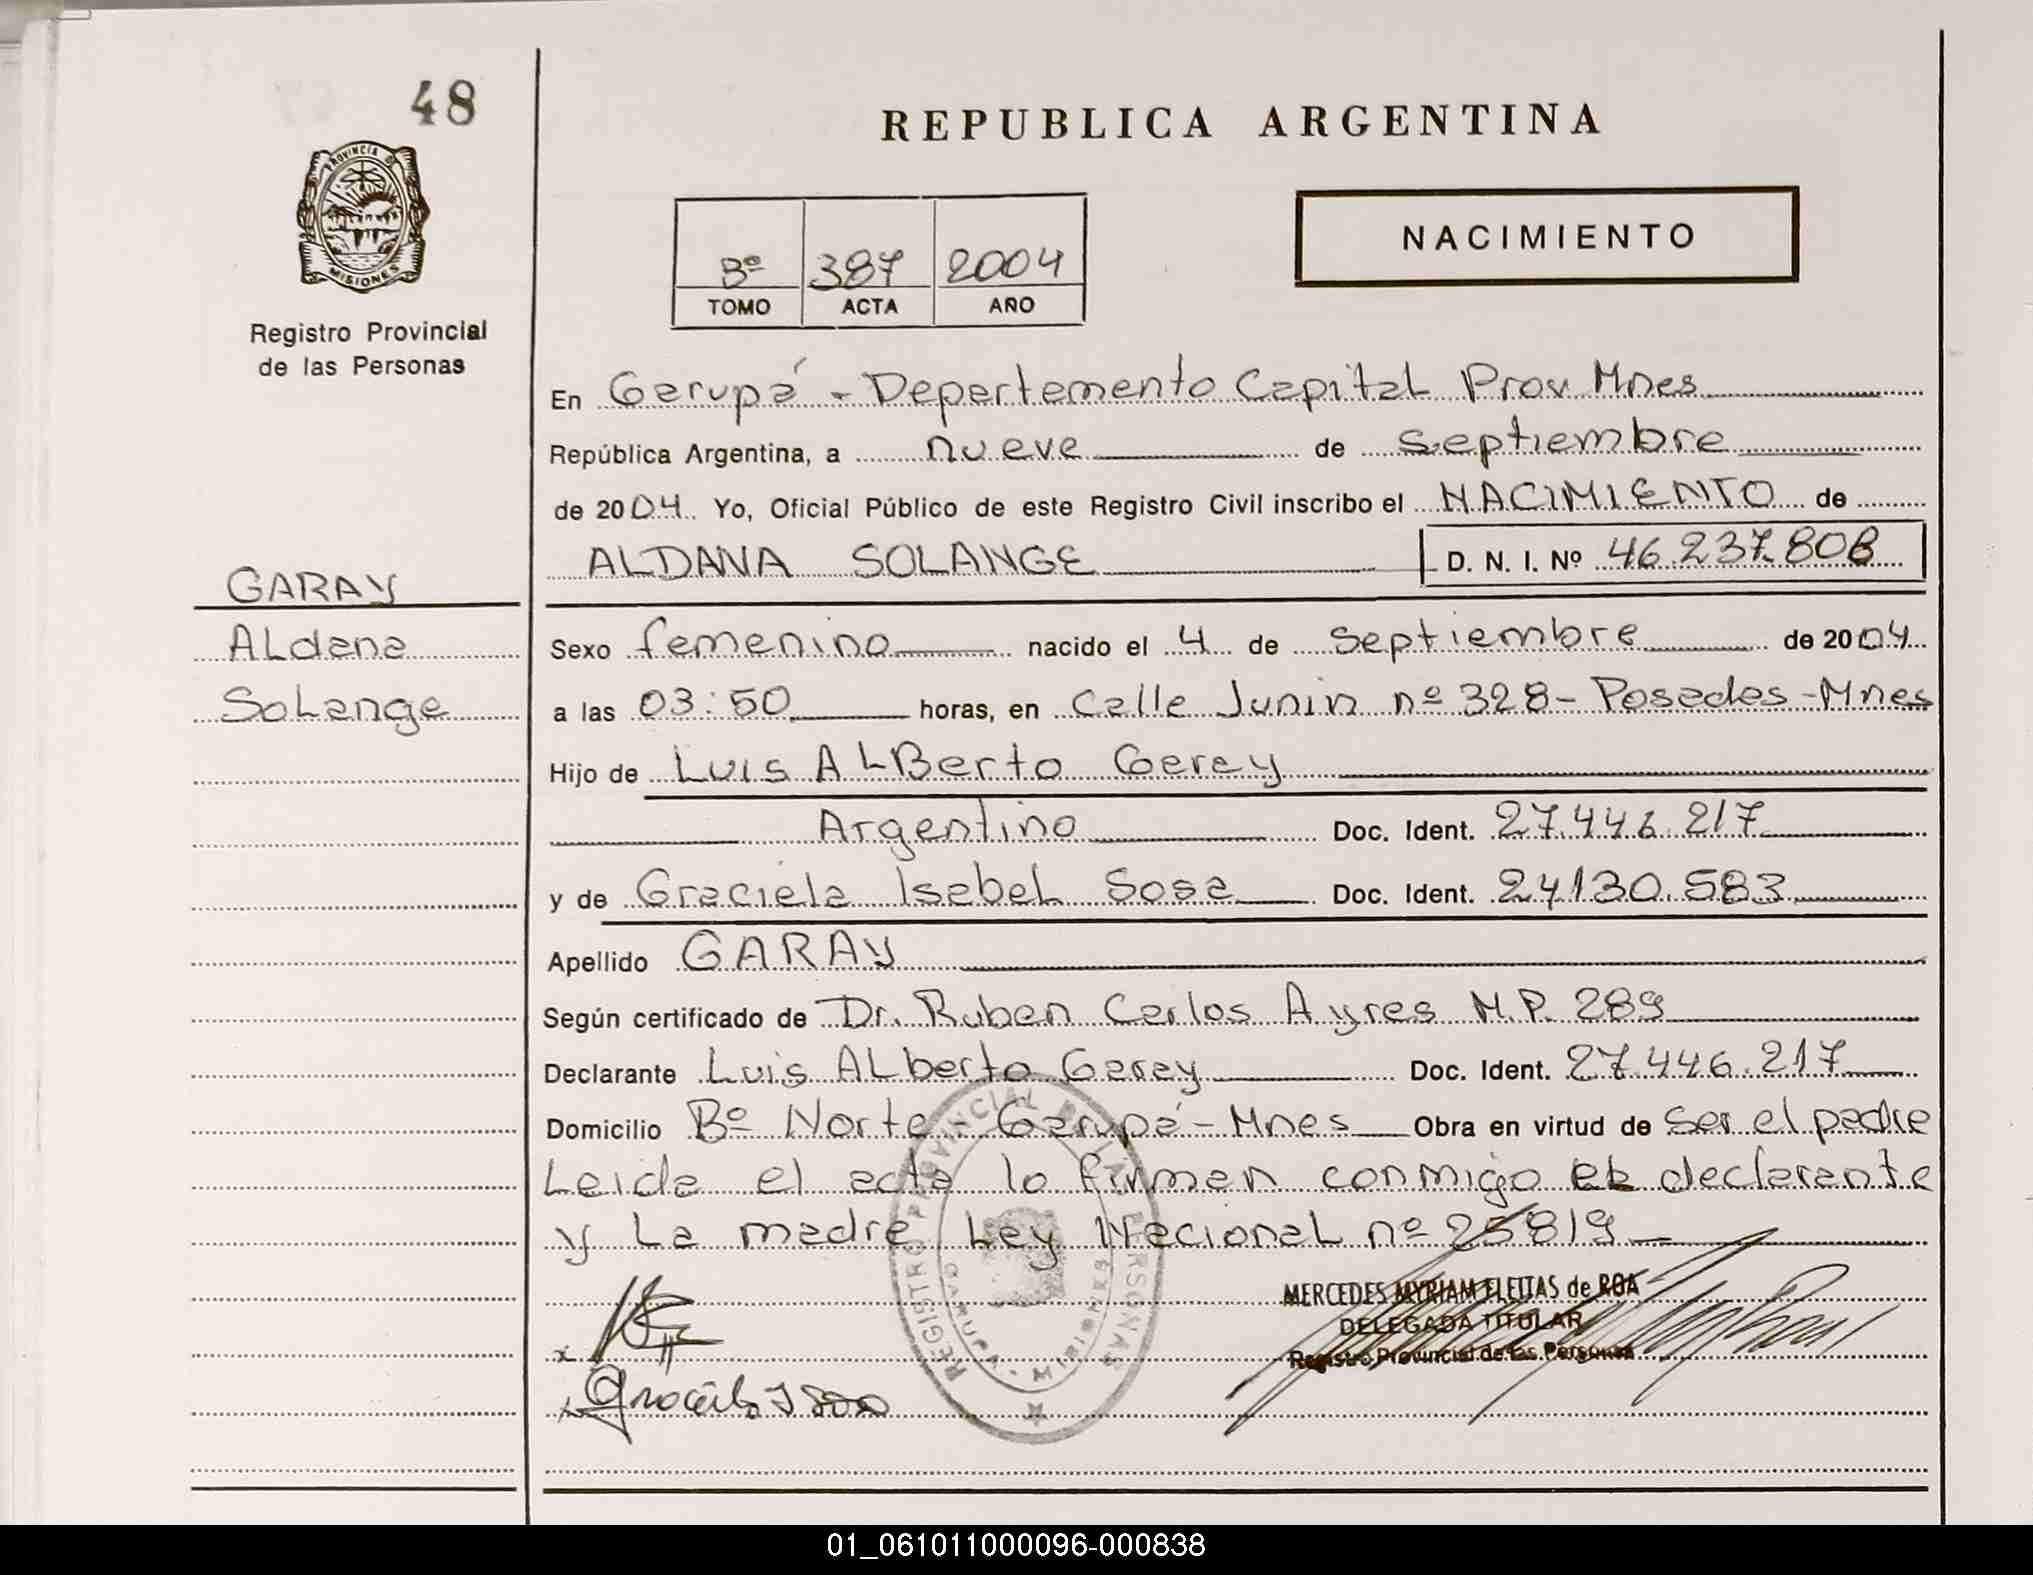 48
REPUBLICA ARGENTINA
PROVINCIA DE
MISIONES
Registro Provincial
de las Personas
Bº 387 2004
TOMO ACTA AÑO
NACIMIENTO
En Garupá - Departamento Capital Prov. Mnes
República Argentina, a nueve de septiembre
de 2004 Yo, Oficial Público de este Registro Civil inscribo el NACIMIENTO de
ALDANA SOLANGE D. N. I. Nº 46.237.808
GARAY
Aldana
Solange
Sexo femenino nacido el 4 de septiembre de 2004
a las 03:50 horas, en Calle Junin nº 328 - Posadas - Mnes
Hijo de Luis Alberto Garay
Argentino Doc. Ident. 27.446.217
y de Graciela Isabel Sosa Doc. Ident. 24.130.583
Apellido GARAY
Según certificado de Dr. Ruben Carlos Ayres M.P. 289
Declarante Luis Alberto Garay Doc. Ident. 27.446.217
Domicilio Bº Norte - Garupá - Mnes Obra en virtud de ser el padre
Leida el acta la firman conmigo el declarante
y La madre Ley Nacional nº 25819
REGISTRO PROVINCIAL DE LAS PERSONAS
MISIONES
MERCEDES MYRIAM FLEITAS de ROA
DELEGADA TITULAR
Registro Provincial de las Personas
x
x Graciela I Sosa
01_061011000096-000838